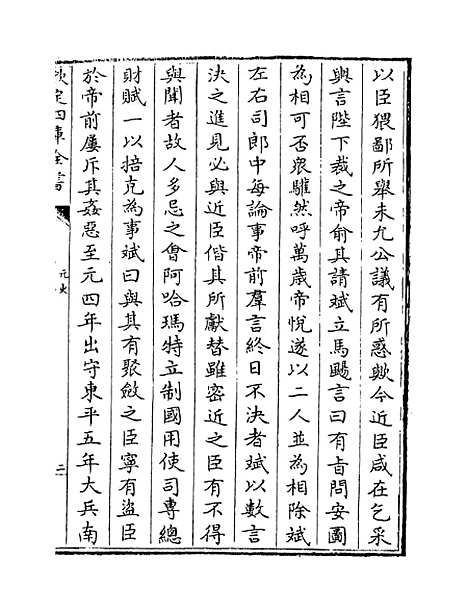 以臣猥鄙所舉未允公議有所惑歟今近臣咸在乞采
與言陛下裁之帝俞其請斌立馬颺言曰有旨問安圖
為相可否衆驩然呼萬歲帝悅遂以二人並為相除斌
左右司郎中每論事帝前羣言終日不決者斌以數言
決之進見必與近臣偕其所獻替雖密近之臣有不得
與聞者故人多忌之會阿哈瑪特立制國用使司專總
財賦一以掊克為事斌曰與其有聚斂之臣寧有盜臣
於帝前屢斥其姦惡至元四年出守東平五年大兵南
欽定四庫全書
元史
二